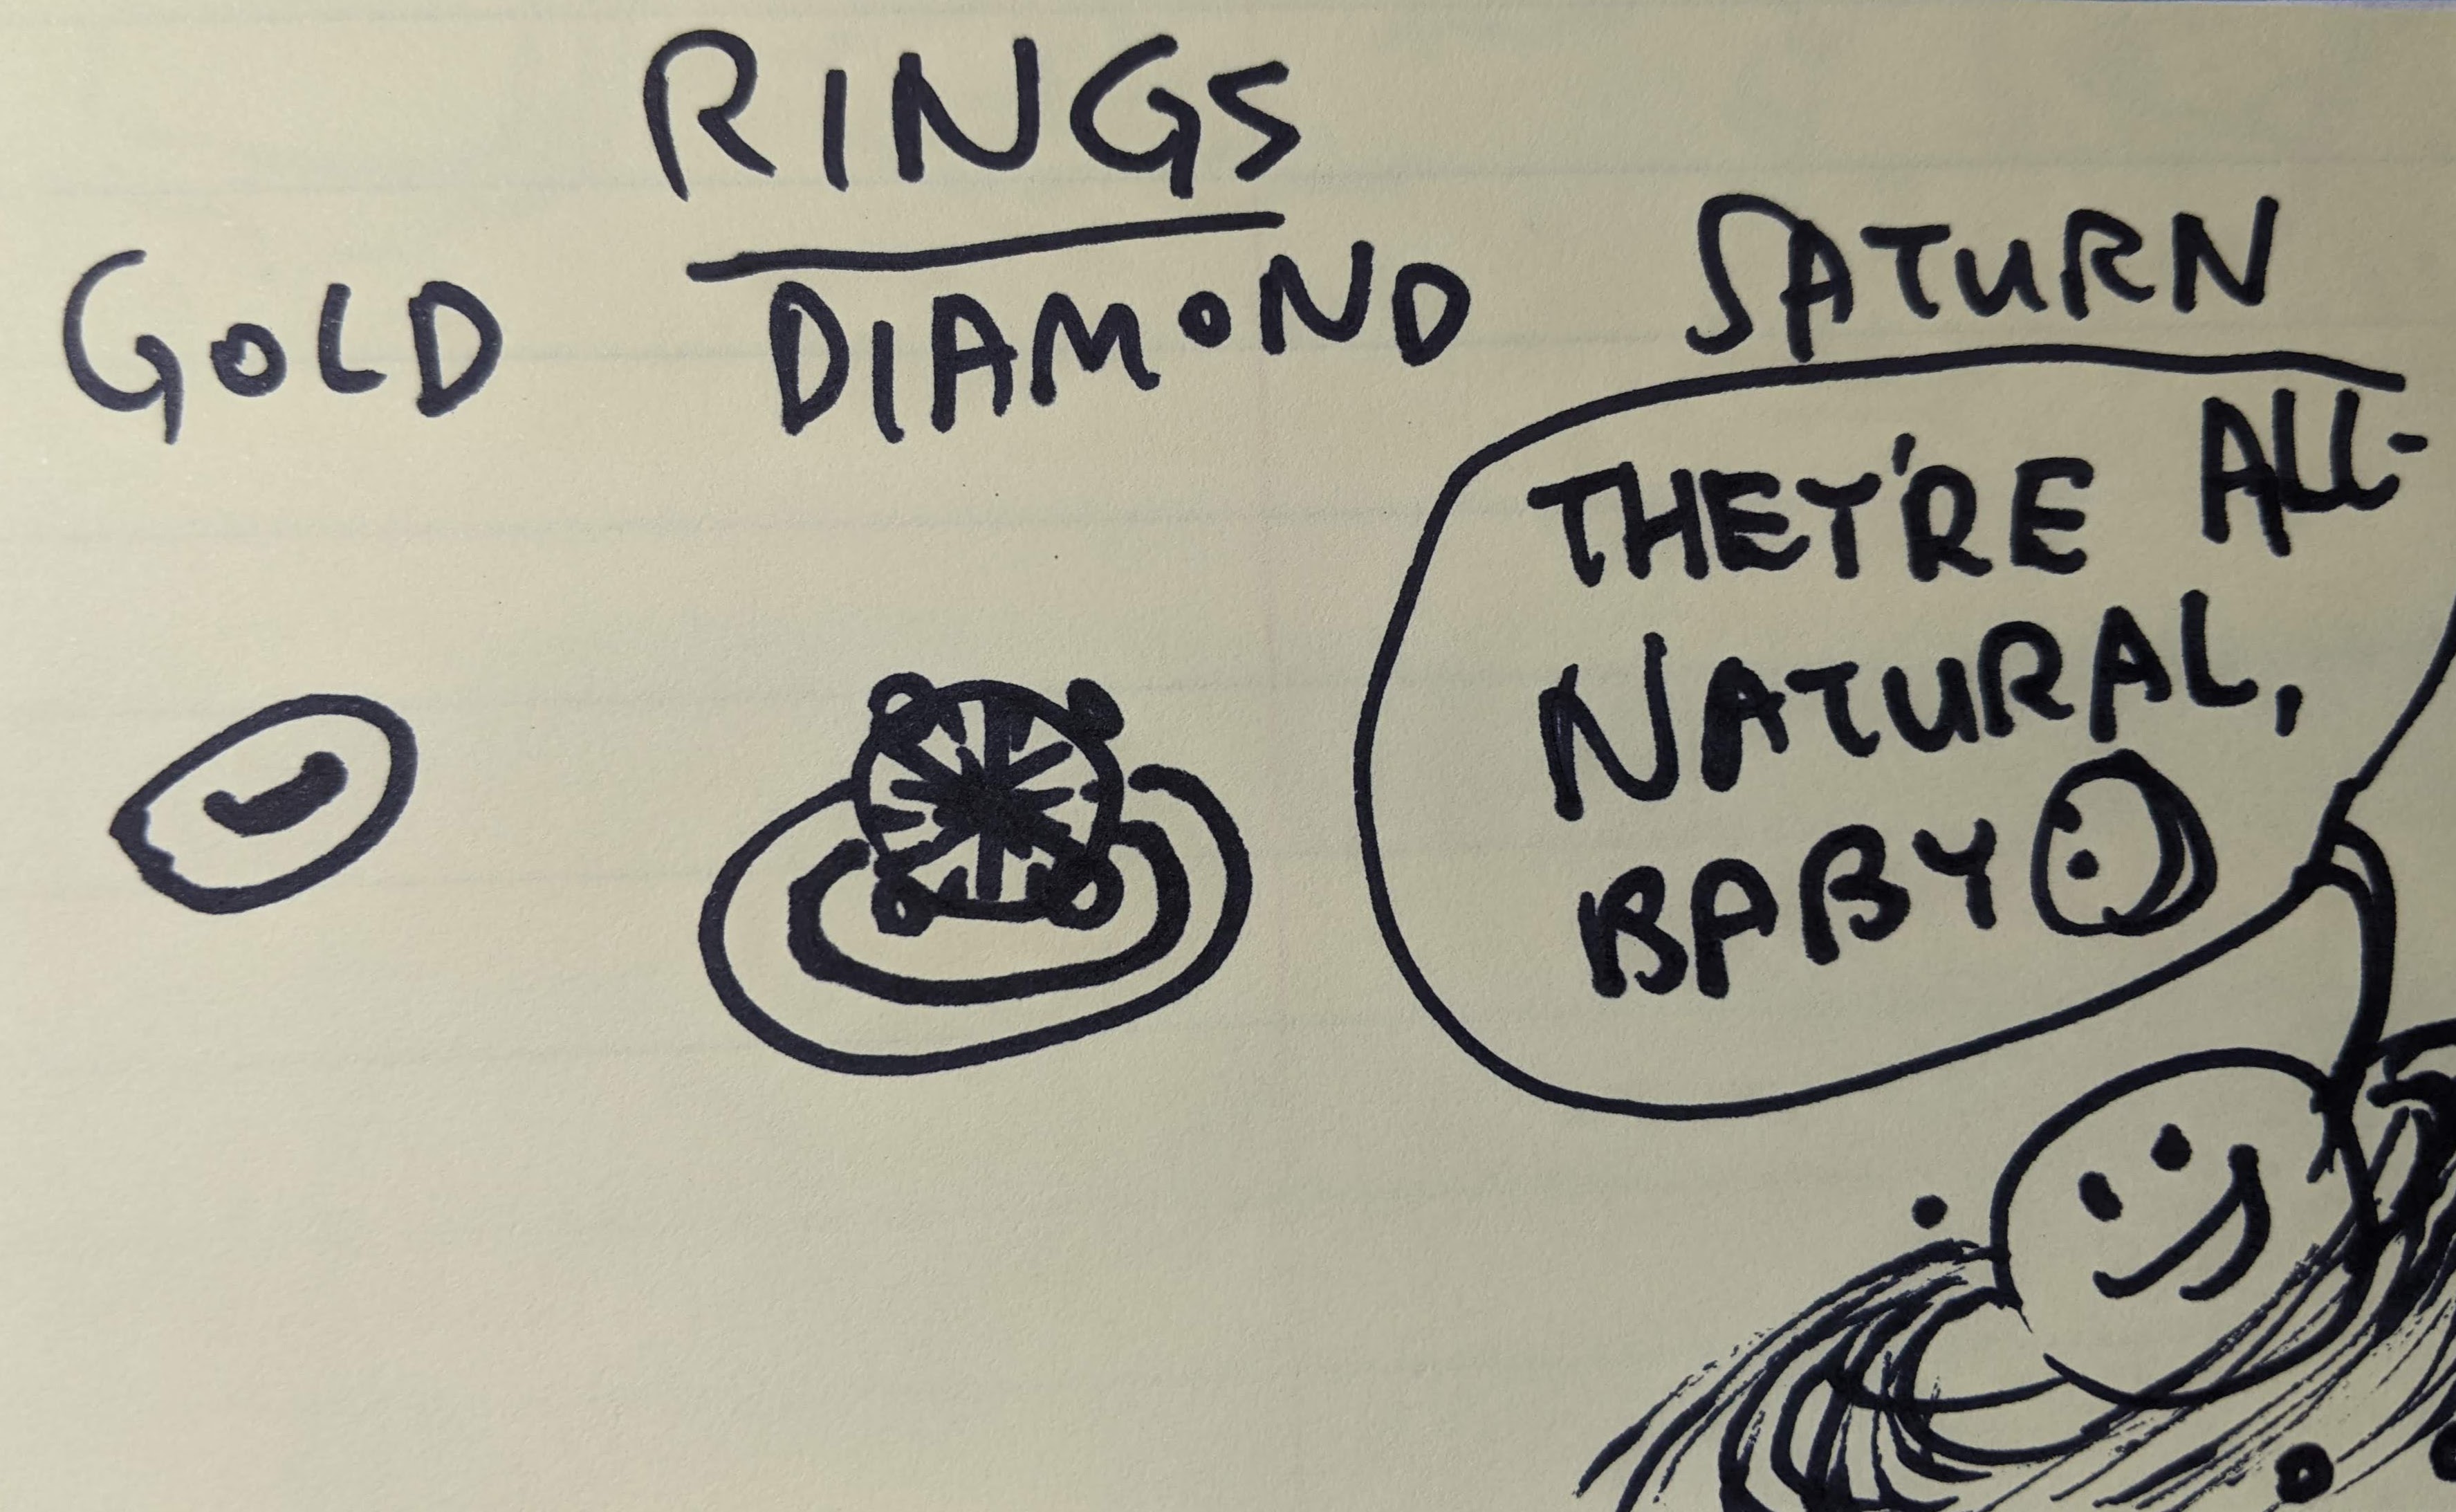 RINGS
GOLD DIAMOND SATURN
THEY'RE ALL-
NATURAL,
BABY